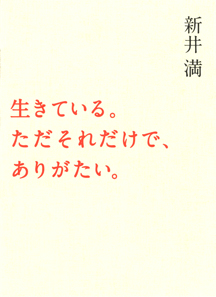 新井満
生きている。
ただそれだけで、
ありがたい。